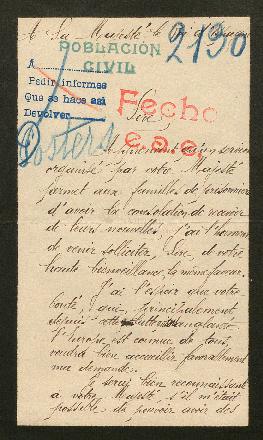 A Sa Majesté le Roi d'Espagne
POBLACIÓN
CIVIL
2190
A
Pedir informes
Que se hace así
Devolver
Fecho
Sire,
organisé par votre Majesté
permet aux familles de
d'avoir la consolation de recevoir
de leurs nouvelles, j'ai l'honneur
de venir solliciter, Sire, de votre
haute bienveillance, la même faveur.
J'ai l'espoir que votre
bonté, qui, principalement,
depuis cette
l'Europe, est connue de tous,
voudra bien accueillir favorablement
ma demande.
Je serais bien reconnaissant
à votre Majesté s'il m'était
possible de pouvoir avoir des